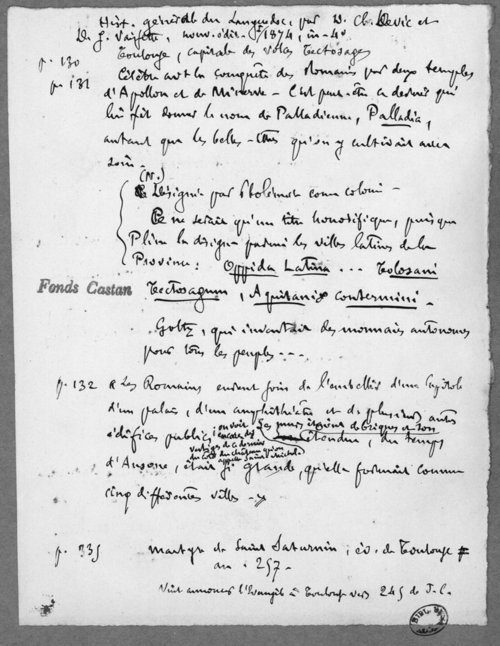 Hist. générale du Languedoc, par D. Cl. Devic et
D. J. Vaissète, nouv. édit. 1874, in-4º
Toulouse, capitale des Volces Tectosages
p. 130
p. 131 Célèbre avt la conquête des Romains par deux temples
d'Apollon et de Minerve - C'est peut-être ce dernier qui
lui fit donner le nom de Palladienne, Palladia,
autant que les belles-lettres qu'on y cultivait avec
soin -
(N.)
Désignée par Ptolémée comme colonie -
Ce ne serait qu'un titre honorifique, puisque
Pline la désigne parmi les villes latines de la
Province : Oppida Latina ... Tolosani
Fonds Castan
Tectosagum, Aquitaniæ contermini -
Goltz, qui inventait des monnaies autonomes
pour tous les peuples ...
p. 132 « Les Romains eurent soin de l'embellir d'un Capitole
d'un palais, d'un amphithéâtre et de plusieurs autres
édifices publics, on voit encore des vestiges de ce dernier du côté du château qu'on appelle Saint Michel Ses murs étaient de briques et son
étendue, du temps
d'Ausone, était si grande, qu'elle formait comme
cinq différentes villes - »
p. 335 martyre de Saint Saturnin, év. de Toulouse
an 257 -
Vint annoncer l'Evangile à Toulouse vers 245 de J. C.